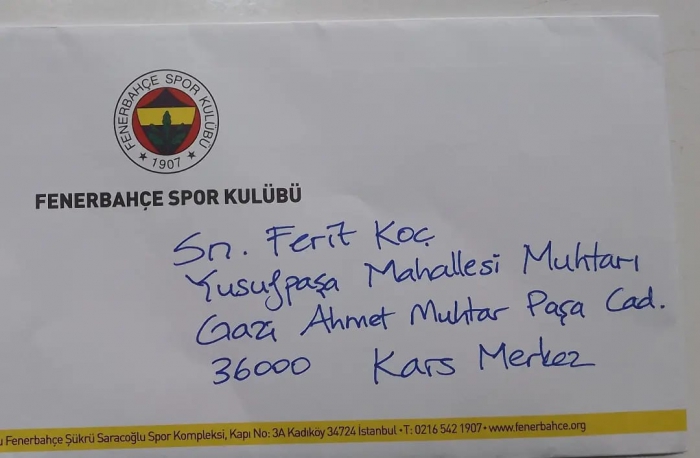 FENERBAHÇE SPOR KULÜBÜ
★ 1907 ★
FENERBAHÇE SPOR KULÜBÜ
Sn. Ferit Koç
Yusufpaşa Mahallesi Muhtarı
Gazi Ahmet Muhtar Paşa Cad.
36000 Kars Merkez
Fenerbahçe Şükrü Saracoğlu Spor Kompleksi, Kapı No: 3A Kadıköy 34724 İstanbul • T: 0216 542 1907 • www.fenerbahce.org